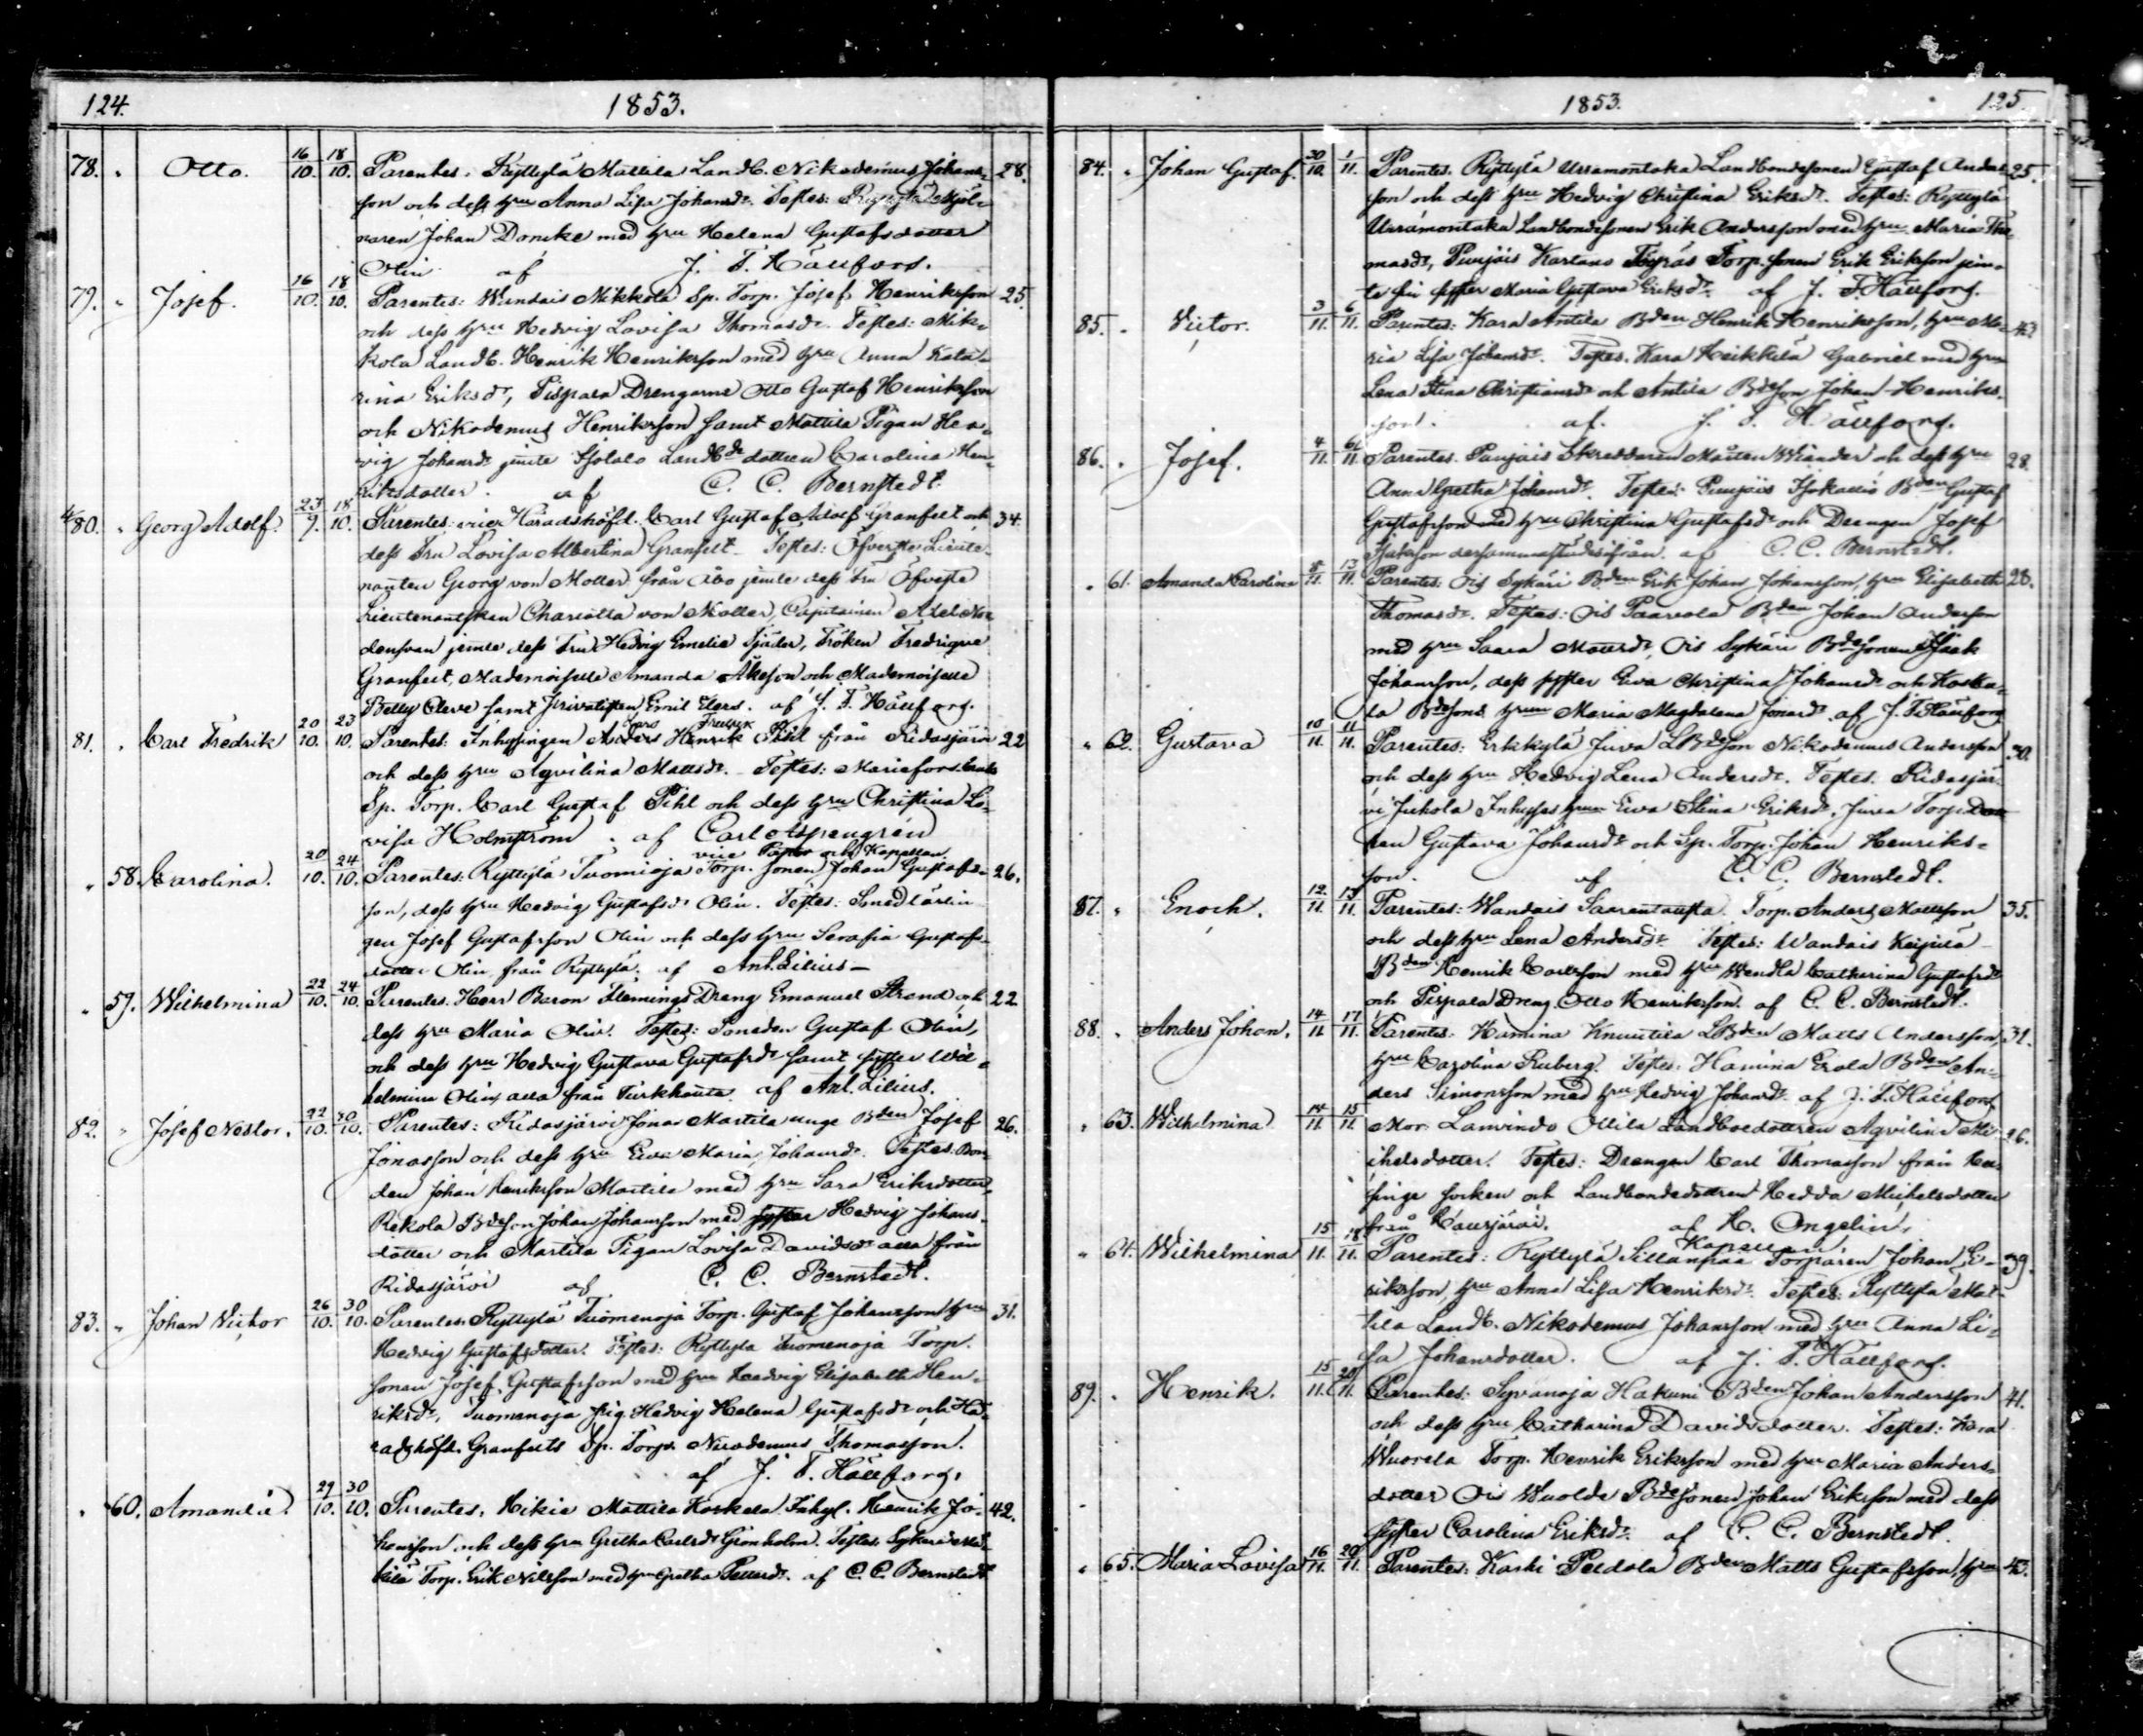 124. 1853.
78. " Otto. 16/10. 18/10. Parentes. Ryttylä Mattila LandB. Nikodemus Johans- 28.
son och dess hru Anna Lisa Johansdr. Testes: Ryttylä Mjöl-
naren Johan Domcke med hru Helena Gustafsdotter
Olin af J. F. Hällfors.
79. " Josef. 16/10. 18/10. Parentes: Wandais Mikkola Sp. Torp. Josef Henriksson 25.
och dess hru Hedvig Lovisa Thomasdr. Testes: Mik-
kola Landb. Henrik Henriksson med hru Anna Kata-
rina Eriksdr, Pispala Drengarne Otto Gustaf Henriksson
och Nikodemus Henriksson samt Mattila Pigan Hed-
vig Johansdr jemte Landbde dottren Carolina Hen-
riksdotter. af C. C. Bernstedt.
80. " Georg Adolf. 23/9. 18/10. Parentes: vice Häradshöfd. Carl Gustaf Adolf Granfelt och 34.
dess Fru Lovisa Albertina Granfelt. Testes: Öfverste Lieute-
nanten Georg von Moller från Åbo jemte dess Fru Öfverste
Lieutenantskan Charlotta von Moller, Capitainen Axel No-
densvan jemte dess Fru Hedvig Emelie Tjäder, Fröken Fredrique
Granfelt, Mademoiselle Amanda Åkeson och Mademoiselle
Betty Cleve samt Privatisten Emil Elers. af J. F. Hällfors.
Lars Fredrik
81. " Carl Fredrik 20/10. 23/10. Parentes: Inhysingen Anders Henrik Pihl från Ridasjärvi 22
och dess hru Aqvilina Mattsdr. Testes: Mariefors
Sp. Torp. Carl Gustaf Pihl och dess hru Christina Lo-
visa Holmström. af Carl Olof Spengrén
vice Pastor och Kapellan
" 58. Carolina. 20/10. 24/10. Parentes: Ryttylä Tuomioja Torp. sonen Johan Gustafs- 26.
son, dess hru Hedvig Gustafsdr Olin. Testes: Smedlärlin
gen Josef Gustafsson Olin och dess hru Serafia Gustafs-
dotter Olin från Ryttylä. af Ant. Lilius.
" 59. Wilhelmina 22/10. 24/10. Parentes. Herr Baron Flemings Dreng Emanuel Strand och 22
dess hru Maria Olin. Testes: Smeden Gustaf Olin,
och dess hru Hedvig Gustava Gustafsdr samt syster Wil-
helmina Olin, alla från Turkhauta. af Ant. Lilius.
82. " Josef Nestor. 22/10. 30/10. Parentes: Ridasjärvi Jonas Martila unge Bden Josef 26.
Jonasson och dess hru Eva Maria Johansdr. Testes. Bon-
den Johan Henriksson Martila med hru Sara Eriksdotter,
Rekola Bdeson Johan Johansson med syster Hedvig Johans-
dotter och Martila Pigan Lovisa Davidsdr alla från
Ridasjärvi af C. C. Bernstedt.
83. " Johan Victor 26/10. 30/10. Parentes. Ryttylä Tuomenoja Torp. Gustaf Johansson hru 31.
Hedvig Gustafsdotter. Testes: Ryttylä Tuomenoja Torp.
sonen Josef Gustafsson med hru Hedvig Elisabeth Hen-
riksdr, Tuomenoja pig. Hedvig Helena Gustafsdr och Hä-
radshöfd. Granfelts Sp. Torp. Nicodemus Thomasson.
af J. F. Hällfors.
" 60. Amanda. 29/10. 30/10. Parentes. Hikiä Mattila Koskela Inhys. Henrik Jo- 42.
hansson och dess hru Gretha Carlsdr Grönholm. Testes. Sykäri
Torp. Erik Nilsson med hru Gretha Pettersdr. af C. C. Bernstedt
1853. 125.
84. " Johan Gustaf. 30/10. 1/11. Parentes. Ryttylä Urramontaka Landbondesonen Gustaf Anders- 25.
son och dess hru Hedvig Christina Eriksdr. Testes: Ryttylä
Urramontaka Landbondesonen Erik Andersson med hru Maria Tho-
masdr, Punjois Kartano Torp. sonen Erik Eriksson jem-
te sin syster Maria Gustava Eriksdr. af J. F. Hällfors.
85. " Victor. 3/11. 6/11. Parentes: Kara Antila Bden Henrik Henriksson, hru Ma- 43
ria Lisa Johansdr. Testes. Kara Heikkilä Gabriel med hru
Lena Stina Christiansdr och Antila Bdeson Johan Henriks-
son. af J. F. Hällfors.
86. " Josef. 4/11. 6/11. Parentes. Punjois Skreddaren Mårten Wiander och dess hru 28.
Anna Gretha Johansdr. Testes: Punjois Isokallio Bden Gustaf
Gustafsson med hru Christina Gustafsdr och Drengen Josef
Isaksson dersammastädesifrån. af C. C. Bernstedt.
" 61. Amanda Carolina 8/11. 13/11. Parentes: Ois Sykäri Bden Erik Johan Johansson, hru Elisabeth 28.
Thomasdr. Testes: Ois Paavola Bden Johan Andersson
med hru Saara Mattsdr, Ois Sykäri Bdesonen Isaak
Johansson, dess syster Eva Christina Johansdr och Koske-
la Bdesons hrun Maria Magdalena Jonasdr. af J. F. Hällfors
" 62. Gustava 10/11. 11/11. Parentes: Erkkylä Juva LBdeson Nikodemus Andersson 30.
och dess hru Hedvig Lena Andersdr. Testes. Ridasjär-
vi Jukola Inhyses hrun Eva Stina Eriksdr. Juva Torp. Dot-
tren Gustava Johansdr och Sp. Torp. Johan Henriks-
son. af C. C. Bernstedt.
87. " Enoch. 12/11. 13/11. Parentes: Wandais Saarentausta Torp. Anders Mattsson 35.
och dess hru Lena Andersdr. Testes: Wandais Keijulä
Bden Henrik Carlsson med hru Wendla Catharina Gustafsdr
och Pispala Dreng. Otto Henriksson. af C. C. Bernstedt.
88. " Anders Johan. 14/11. 17/11. Parentes: Hamina Knuutila LBden Matts Andersson 31.
hru Carolina Ruberg. Testes. Hamina Erola Bden An-
ders Simonsson med hru Hedvig Johansdr. af J. F. Hällfors.
" 63. Wilhelmina 14/11. 15/11. Mor. Lanvindo Ollila Landboedottren Aqvilina Mi- 26.
ckelsdotter. Testes: Drengen Carl Thomasson från Hau-
singe socken och Landbondedottren Hedda Michelsdotter
från Kaurjärvi. af H. Ongelin,
Kapellan
" 64. Wilhelmina 15/11. 18/11. Parentes: Ryttylä Sillanpää Torparen Johan E- 39.
riksson, hru Anna Lisa Henriksdr. Testes: Ryttylä Mat-
tila Landb. Nikodemus Johansson med hru Anna Li-
sa Johansdotter. af J. F. Hällfors.
89. " Henrik. 15/11. 20/11. Parentes: Syvänoja Hakuni Bden Johan Andersson 41.
och dess hru Catharina Davidsdotter. Testes: Kara
Wuorela Torp. Henrik Eriksson med hru Maria Anders-
dotter Ois Wuolde Bdesonen Johan Eriksson med dess
syster Carolina Eriksdr. af C. C. Bernstedt.
" 65. Maria Lovisa 16/11. 20/11. Parentes: Karhi Peldola Bden Matts Gustafsson, hru 43.